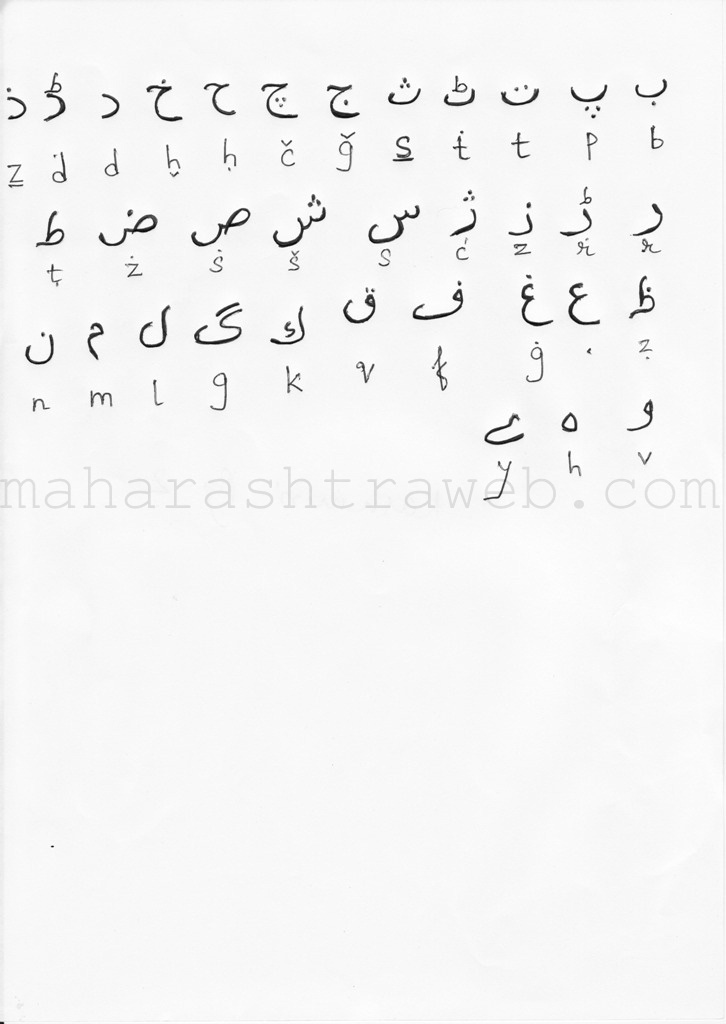 ب پ ت ٹ ث ج چ ح خ د ڈ ذ
b p t ṫ s̲ ǧ č ḥ h̬ d ḋ z̳
ر ڑ ز ژ س ش ص ض ط
r ṙ z ć s š ṡ ż ṭ
ظ ع غ ف ق ك گ ل م ن
ẓ ʻ ġ f q k g l m n
و ہ ے
v h y
maharashtraweb.com